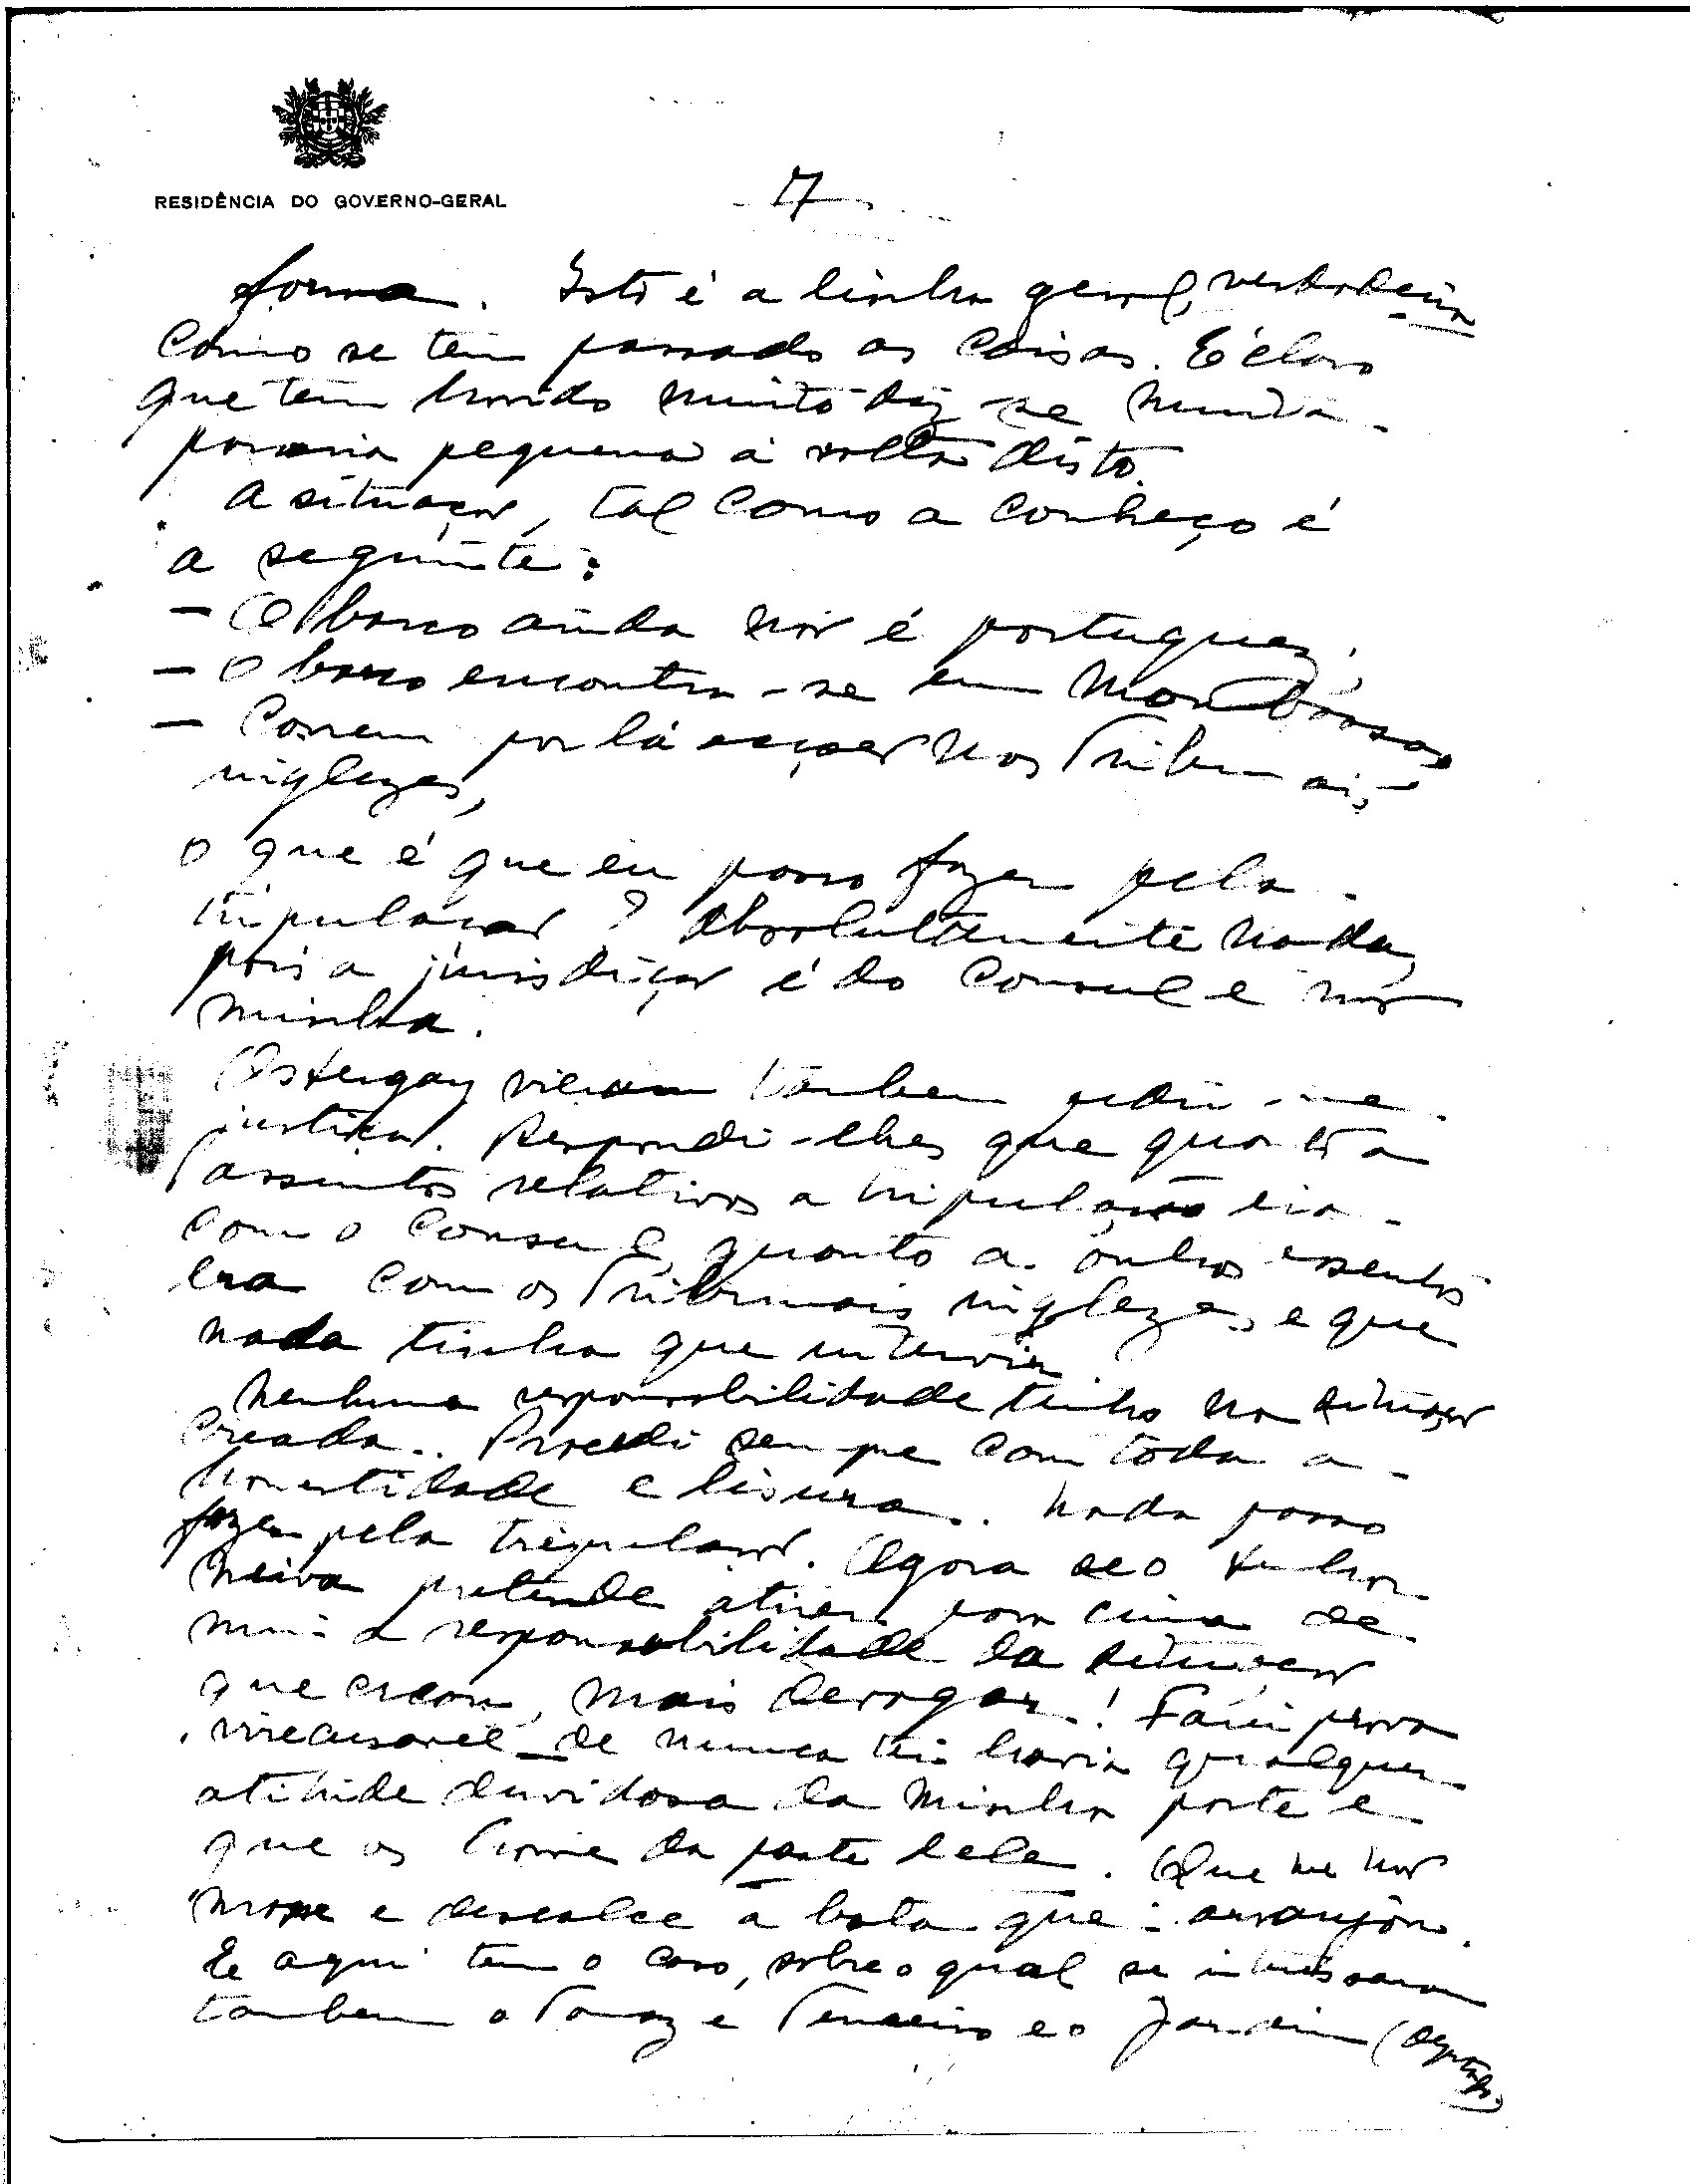 RESIDÊNCIA DO GOVERNO-GERAL
- 7 -
forma. Isto é a linha geral, verdadeira
como se tem passado as coisas. E é claro
que tem havido muito diz-se numa
pequena à volta disto.
A situação, tal como a conheço é
a seguinte:
- O barco ainda não é portuguez;
- O barco encontra-se em Mombassa
- Correm por lá acções nos Tribunais
inglezes,
O que é que eu posso fazer pela
tripulação? Absolutamente nada,
pois a jurisdição é do Consul e não
minha.
vieram tambem pedir-me
justiça. Respondi-lhes que quanto a
assuntos relativos a tripulação era
com o Consul, quanto a outros assuntos
era com os Tribunais inglezes, e que
nada tinha que intervir.
Nenhuma responsabilidade tenho na situação
creada. Procedi sempre com toda a
honestidade e lisura. Nada posso
fazer pela tripulação. Agora se o senhor
Neiva pretende atirar para cima de
mim a responsabilidade da situação
que creou, mais devagar! Farei prova
irrecusavel de nunca ter havido qualquer
atitude duvidosa da minha parte e
que as houve da parte dele. Que me não
mace e descalce a bota que arranjou.
E aqui tem o caso, sobre o qual se interessaram
tambem o Tomaz e o Jardim (deputado)